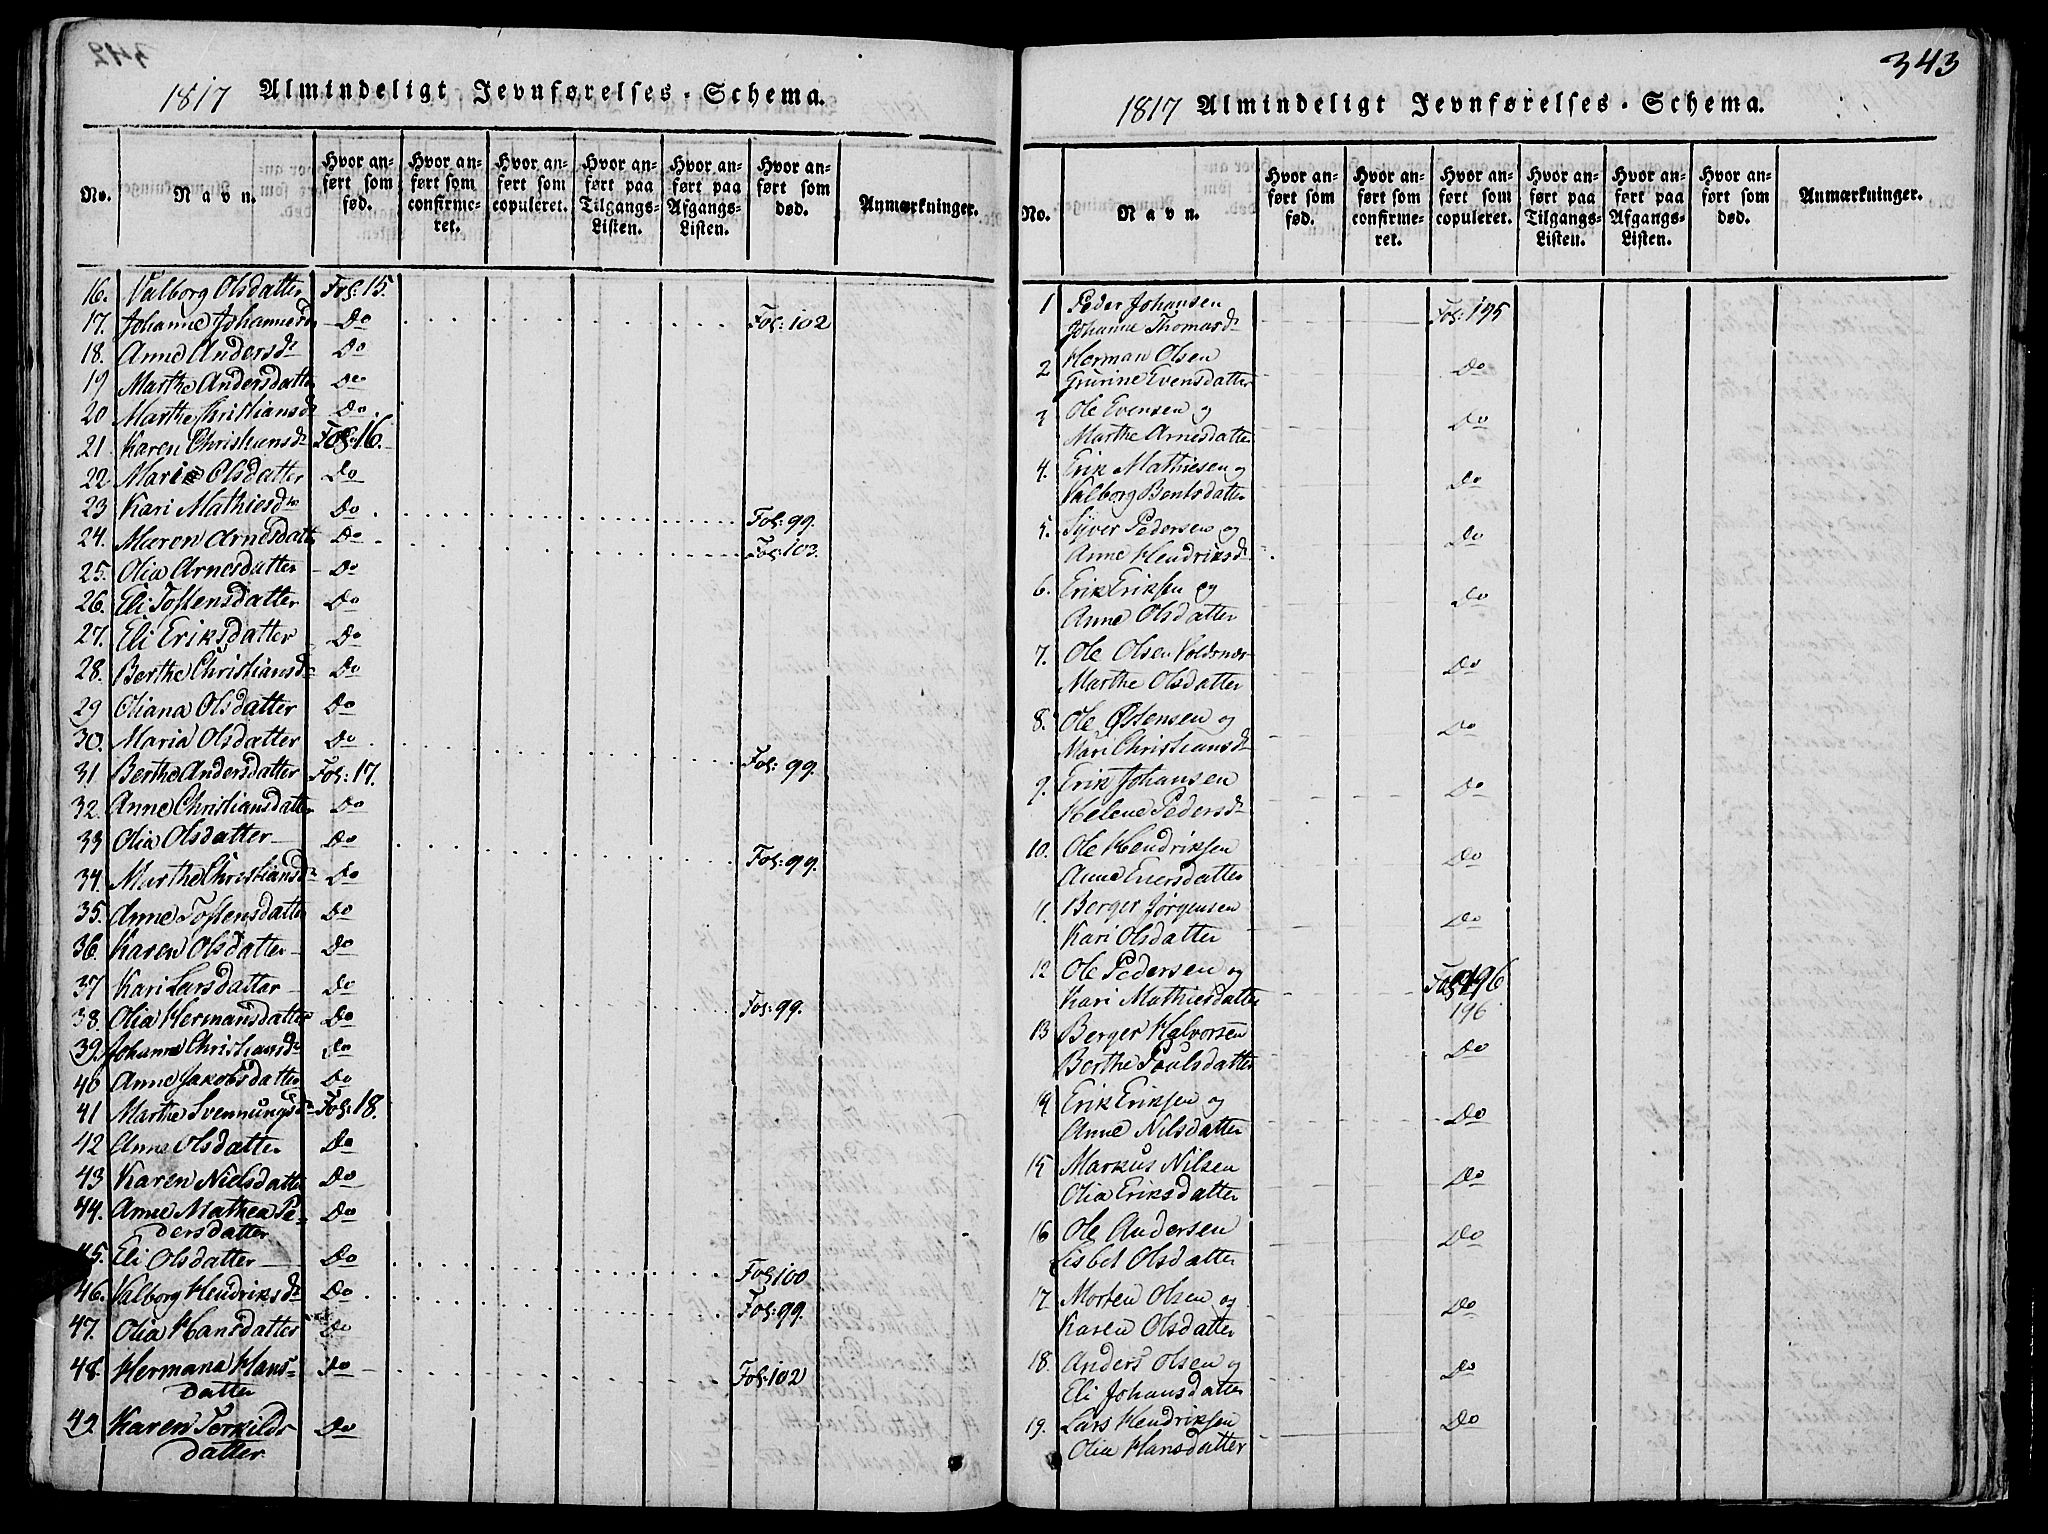 1817 Almindeligt Jevnførelses-Schema.
No.
Navn.
Hvor anført som fød.
Hvor anført som confirmeret.
Hvor anført som copuleret.
Hvor anført paa Tilgangs-Listen.
Hvor anført paa Afgangs-Listen.
Hvor anført som død.
Anmærkninger.
16. Valborg Olsdatter Fol: 15.
17. Johanne Johannesd Do Fol: 102
18. Anne Andersdr Do
19 Marthe Andersdatter Do
20 Marthe Christiansdr Do
21 Karen Christiansdr Fol: 16.
22 Marie Olsdatter Do
23 Kari Mathiesdr Do Fol: 99.
24. Maren Arnesdatt Do Fol: 103.
25. Olia Arnesdatter Do
26. Eli Tostensdatter Do
27. Eli Eriksdatter Do
28. Berthe Christiansdr Do
29 Oliana Olsdatter Do
30. Maria Olsdatter Do
31 Berthe Andersdatter Fol: 17. Fol: 99.
32. Anne Christiansdatter Do
33 Olia Olsdatter Do Fol: 99.
34. Marthe Christiansdr Do
35. Anne Tostensdatter Do
36. Karen Olsdatter Do
37 Kari Larsdatter Do
38. Olia Hermansdatter Do Fol: 99.
39. Johanne Christiansdr Do
40 Anne Jakobsdatter Do
41 Marthe Svennungsdr Fol: 18.
42 Anne Olsdatter Do
43 Karen Nielsdatter Do
44. Anne Mathea Pe- Do
dersdatter
45. Eli Olsdatter Do Fol: 100
46. Valborg Hendriksdr Do Fol: 99.
47. Olia Hansdatter Do
48. Hermana Hans- Do Fol: 102
datter
49 Karen Terkilds Do
datter
343
1817 Almindeligt Jevnførelses-Schema.
No.
Navn.
Hvor anført som fød.
Hvor anført som confirmeret.
Hvor anført som copuleret.
Hvor anført paa Tilgangs-Listen.
Hvor anført paa Afgangs-Listen.
Hvor anført som død.
Anmærkninger.
1 Peder Johansen
Johanne Thomasdr Fol: 195
2 Herman Olsen
Gurine Evensdatter Do
3 Ole Evensen og
Marthe Arnesdatter Do
4. Erik Mathiesen og
Valborg Bentsdatter Do
5. Syver Pedersen og
Anne Hendriksdr Do
6. Erik Eriksen og
Anne Olsdatter Do
7. Ole Olsen
Marthe Olsdatter Do
8. Ole Østensen og
Mari Christiansdr Do
9. Erik Johansen
Helene Pedersdr Do
10. Ole Hendriksen
Anne Eversdatter Do
11. Berger Jørgensen
Kari Olsdatter Do
12 Ole Pedersen og
Kari Mathiesdatter Fol: 196
196
13 Berger Halvorsen
Berthe Poulsdatter Do
14 Erik Eriksen og
Anne Nilsdatter Do
15 Markus Nilsen
Olia Eriksdatter Do
16 Ole Andersen
Lisbet Olsdatter Do
17 Morten Olsen og
Karen Olsdatter Do
18. Anders Olsen og
Eli Johansdatter Do
19. Lars Hendriksen
Olia Hansdatter Do